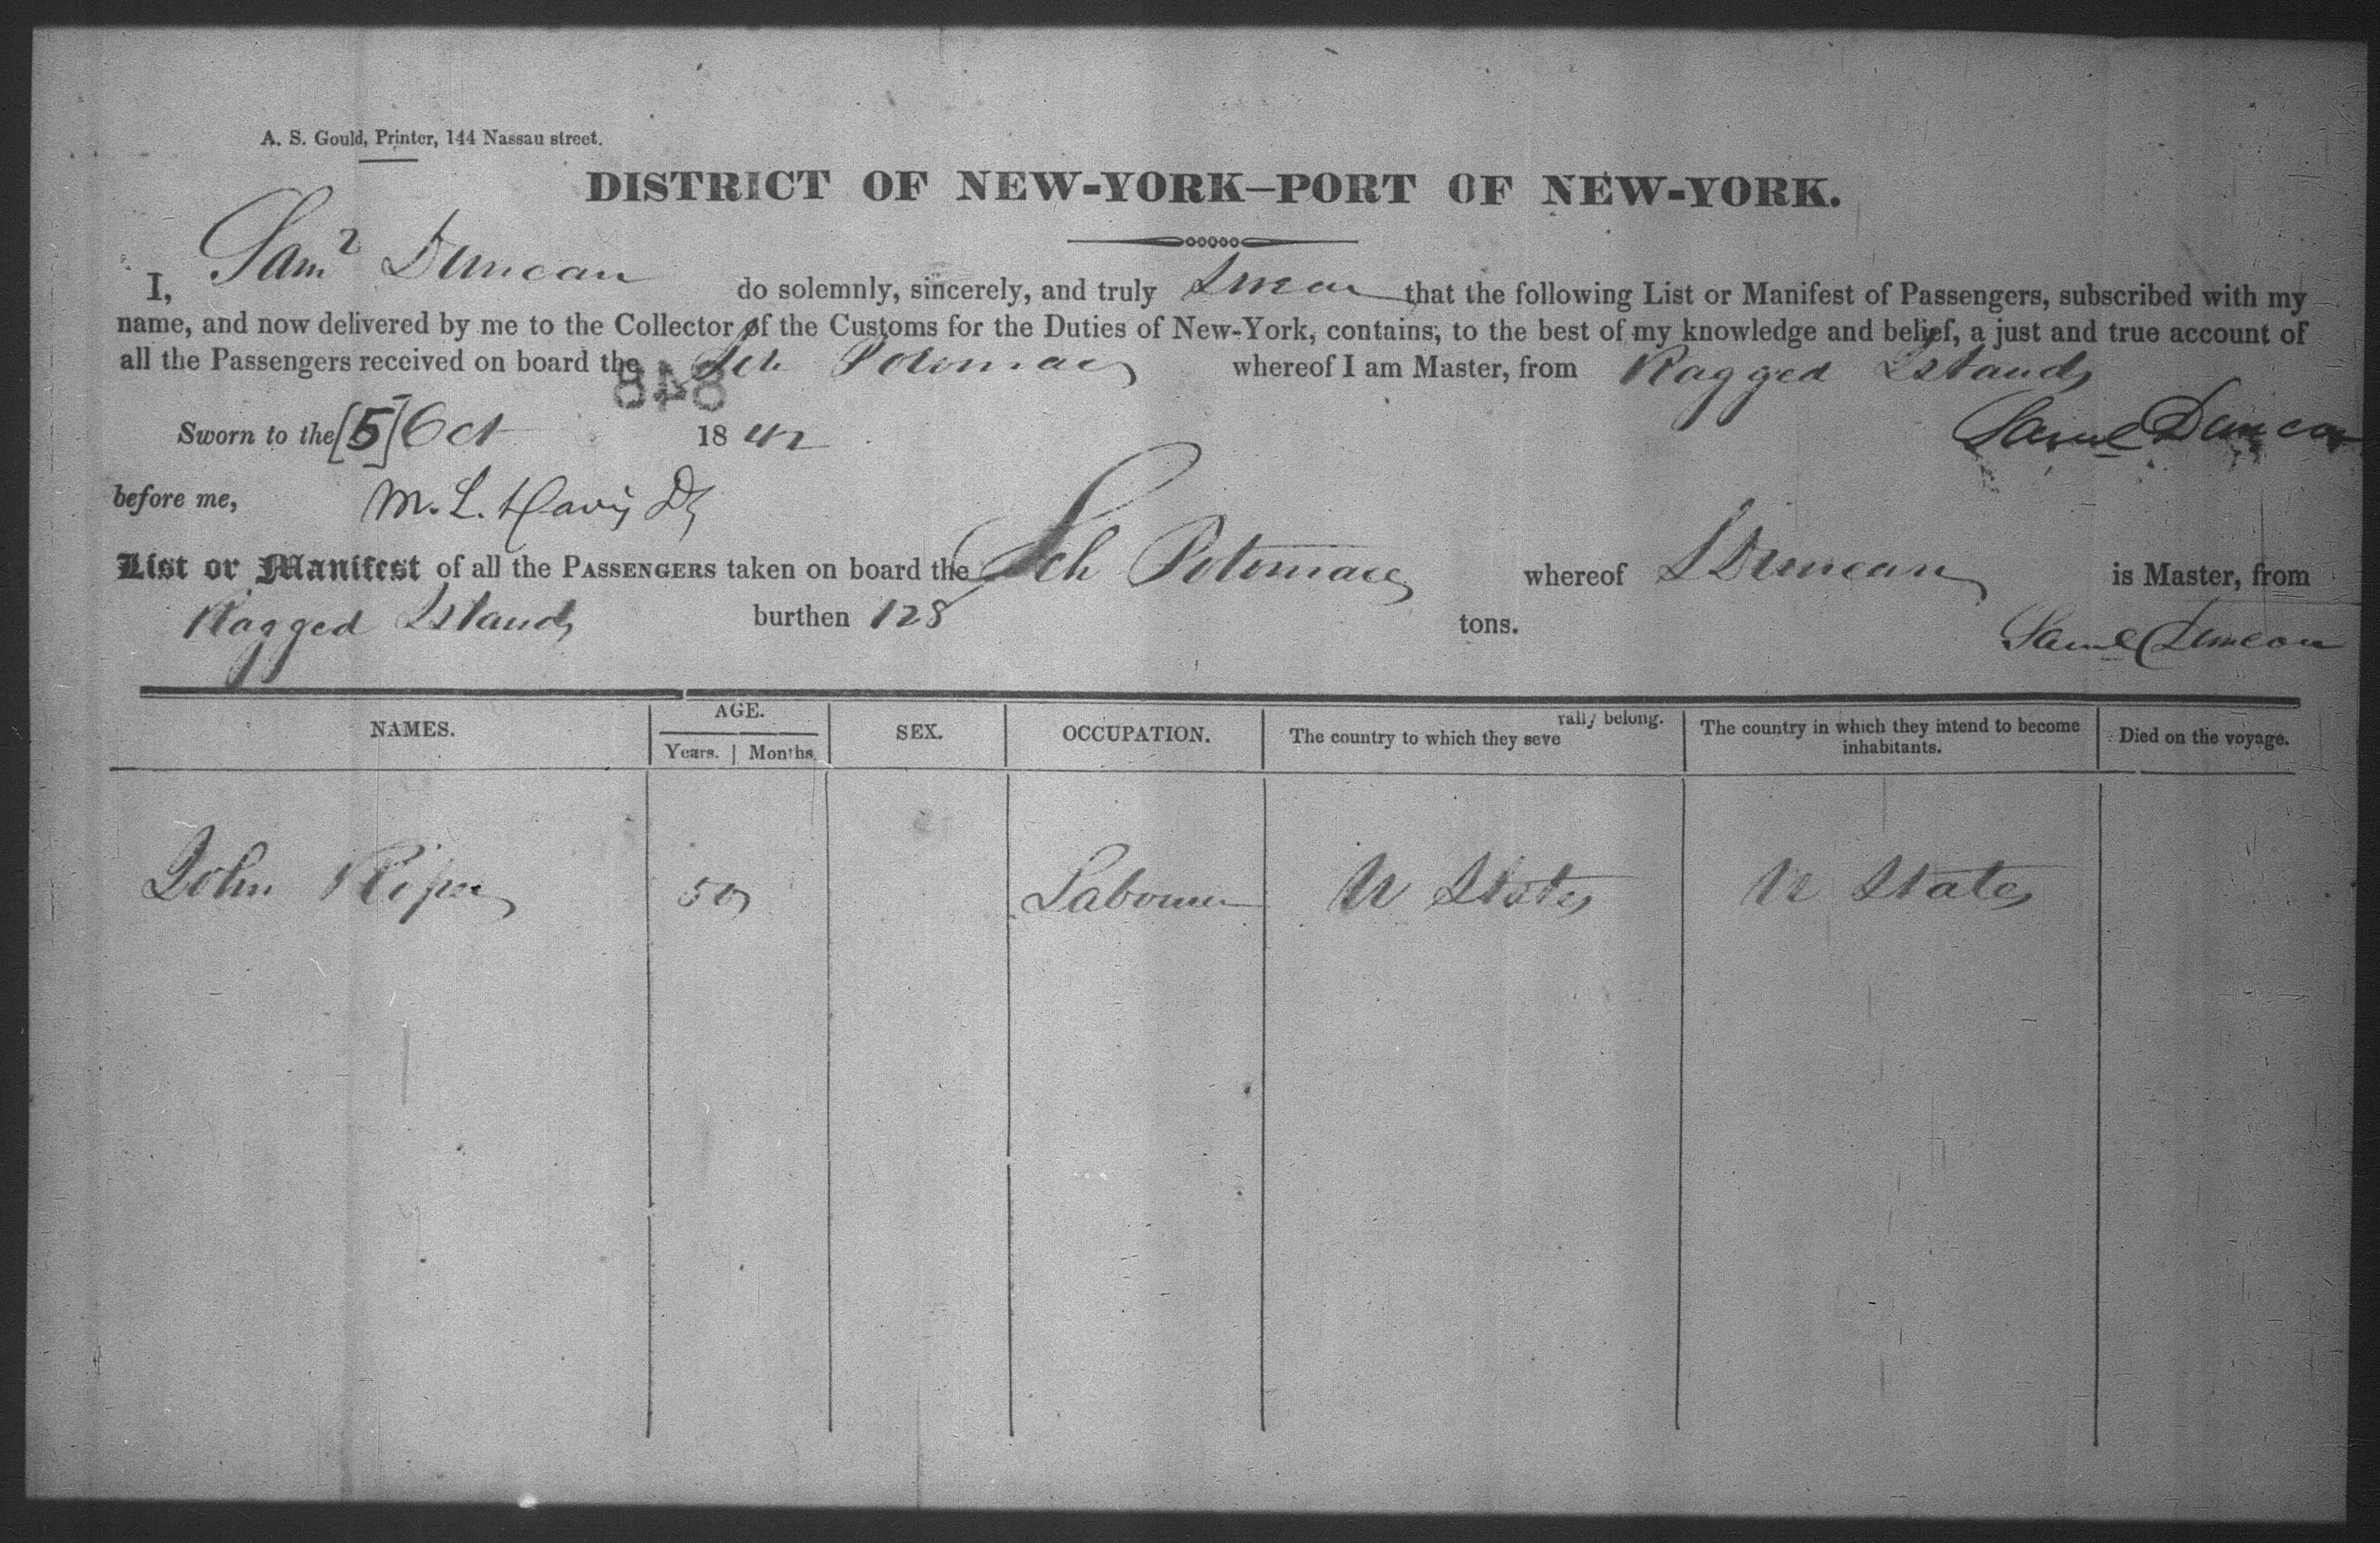 A. S. Gould, Printer, 144 Nassau street.
DISTRICT OF NEW-YORK—PORT OF NEW-YORK.
I, Saml Duncan do solemnly, sincerely, and truly swear that the following List or Manifest of Passengers, subscribed with my
name, and now delivered by me to the Collector of the Customs for the Duties of New-York, contains, to the best of my knowledge and belief, a just and true account of
all the Passengers received on board the Sch Potomac whereof I am Master, from Ragged Island
848
Sworn to the [5] Oct 1842 Saml Duncan
before me, M. L. Davis
List or Manifest of all the PASSENGERS taken on board the Sch Potomac whereof S Duncan is Master, from
Ragged Island burthen 128 tons. Saml Duncan
NAMES. AGE. Years. Months. SEX. OCCUPATION. The country to which they severally belong. The country in which they intend to become inhabitants. Died on the voyage.
John 50 Labourer U States U States